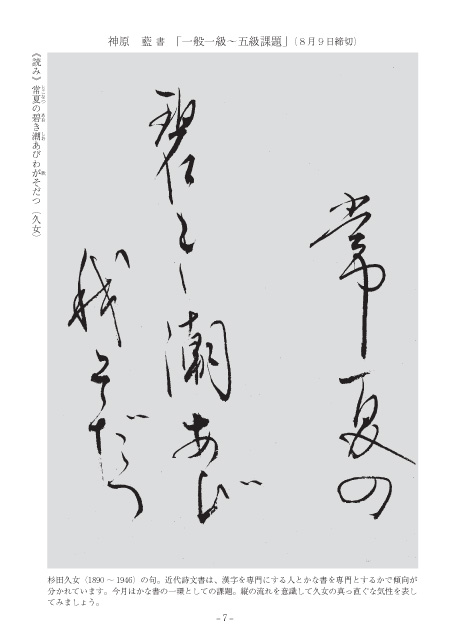 神原　藍 書　「一般一級～五級課題」（８月９日締切）
《読み》常夏の碧き潮あびわがそだつ（久女）
常夏の
碧き潮あび
我そだつ
杉田久女（1890 ～ 1946）の句。近代詩文書は、漢字を専門にする人とかな書を専門とするかで傾向が
分かれています。今月はかな書の一環としての課題。縦の流れを意識して久女の真っ直ぐな気性を表し
てみましょう。
－7－